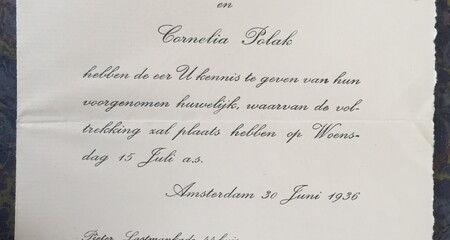 en
Cornelia Polak
hebben de eer U kennis te geven van hun
voorgenomen huwelijk, waarvan de vol-
trekking zal plaats hebben op Woens-
dag 15 Juli a.s.
Amsterdam 30 Juni 1936
Pieter Lastmankade